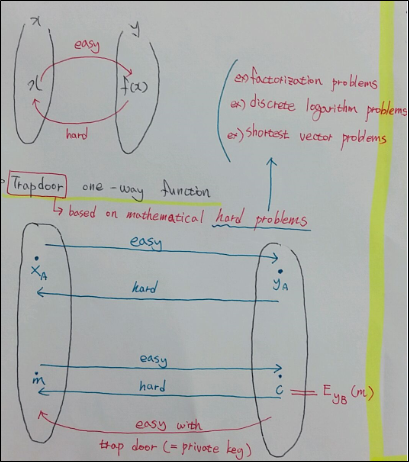 x
y
easy
x
f(x)
hard
ex) factorization problems
ex) discrete logarithm problems
ex) shortest vector problems
Trapdoor one-way function
↳ based on mathematical hard problems
easy
x_A
y_A
hard
easy
m
hard
c = E_{y_B}(m)
easy with
trap door (= private key)